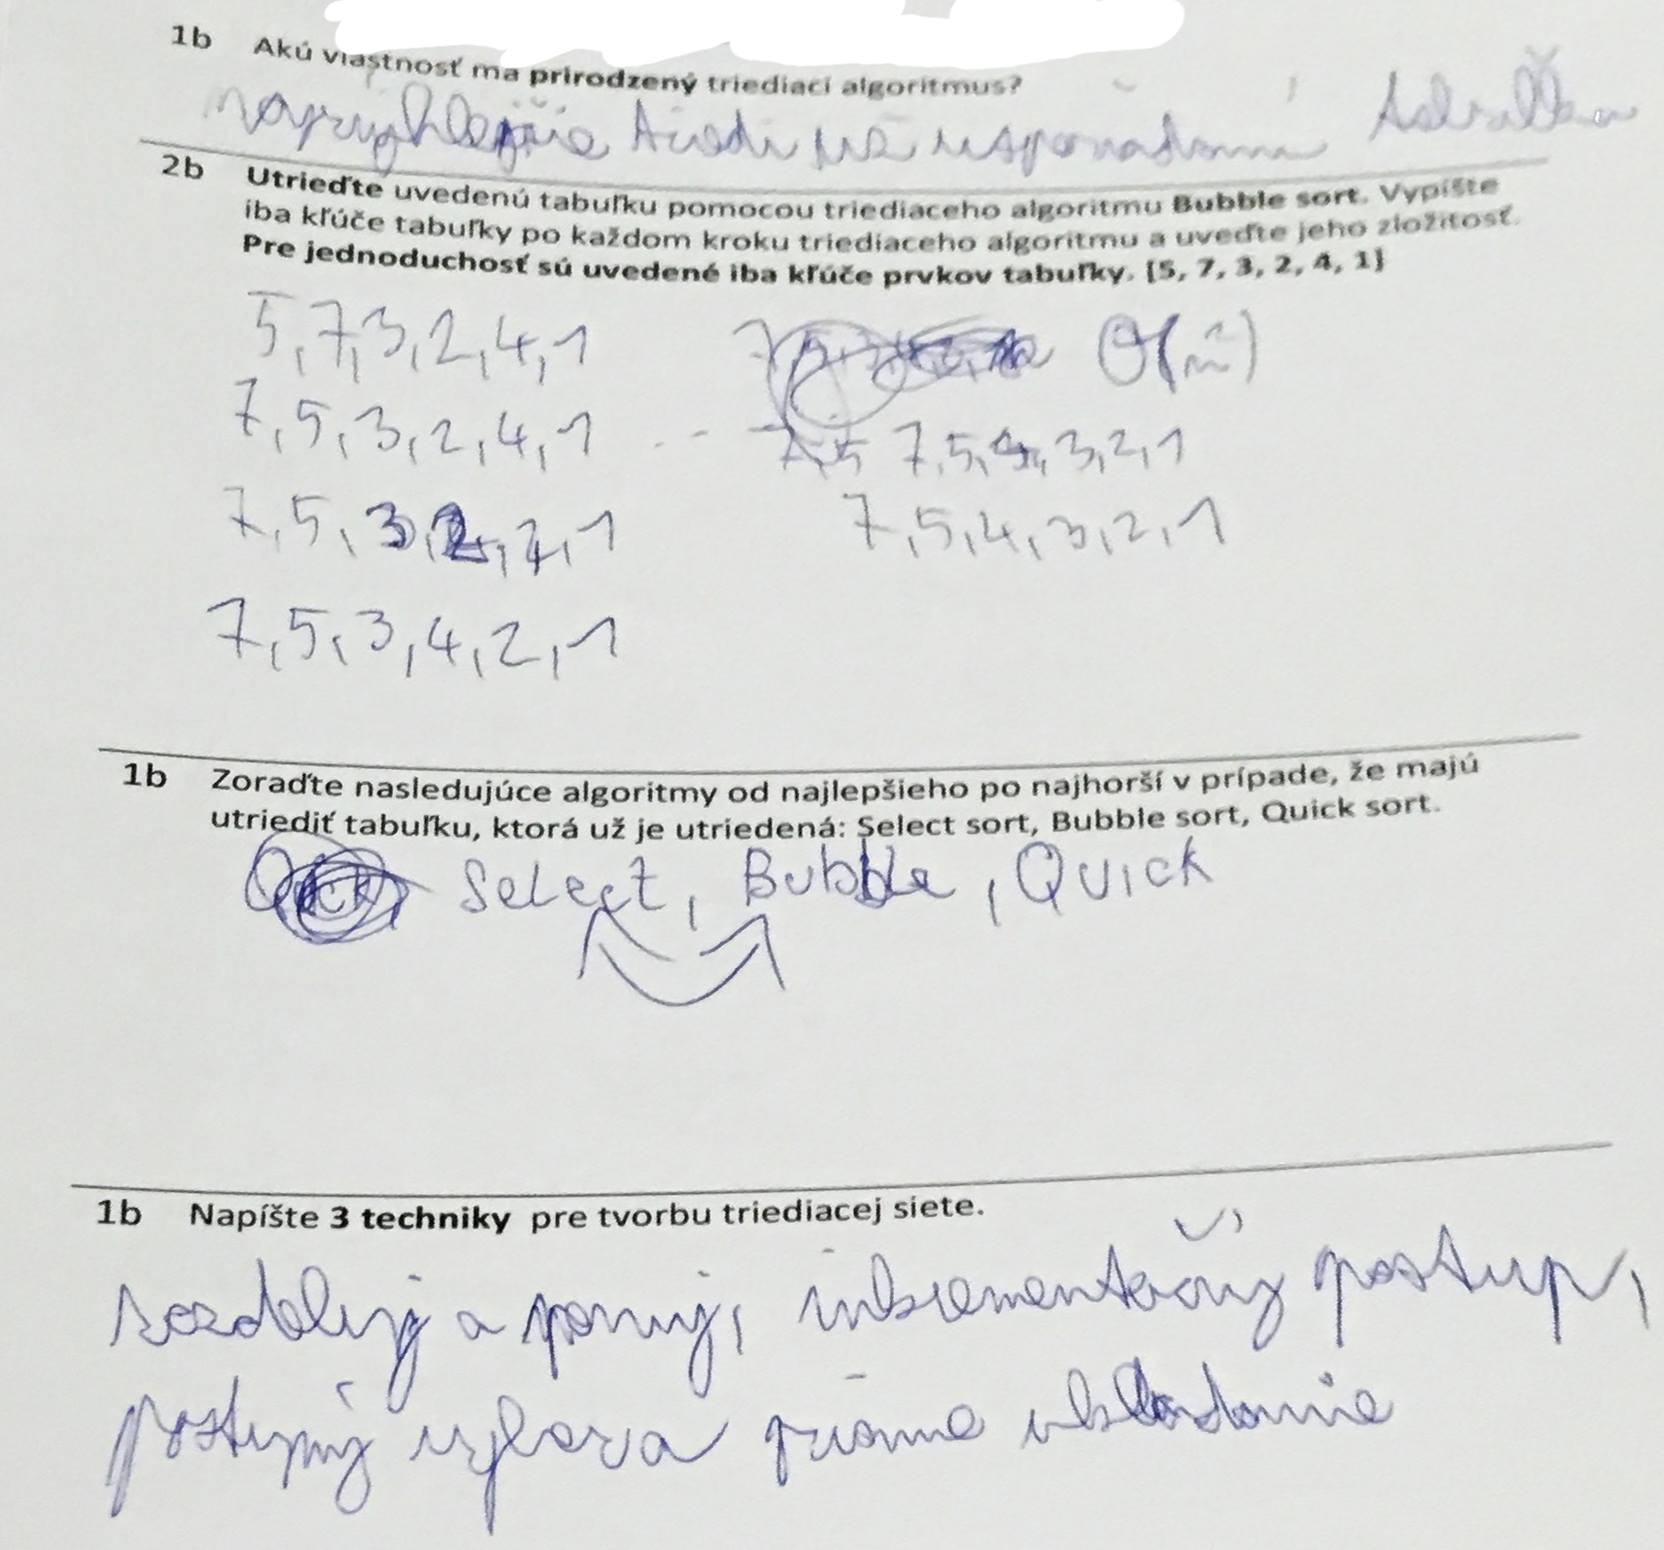 1b Akú vlastnosť ma prirodzený triediaci algoritmus?
najrýchlejšie triedi už usporiadanú tabuľku
2b Utrieďte uvedenú tabuľku pomocou triediaceho algoritmu Bubble sort. Vypíšte
iba kľúče tabuľky po každom kroku triediaceho algoritmu a uveďte jeho zložitosť.
Pre jednoduchosť sú uvedené iba kľúče prvkov tabuľky. {5, 7, 3, 2, 4, 1}
5,7,3,2,4,1 O(n²)
7,5,3,2,4,1 -- 7,5,4,3,2,1
7,5,3,2,1 7,5,4,3,2,1
7,5,3,4,2,1
1b Zoraďte nasledujúce algoritmy od najlepšieho po najhorší v prípade, že majú
utriediť tabuľku, ktorá už je utriedená: Select sort, Bubble sort, Quick sort.
Select, Bubble, Quick
1b Napíšte 3 techniky pre tvorbu triediacej siete.
rozdeluj a panuj, inkrementačný postup,
postupný priame vkladanie